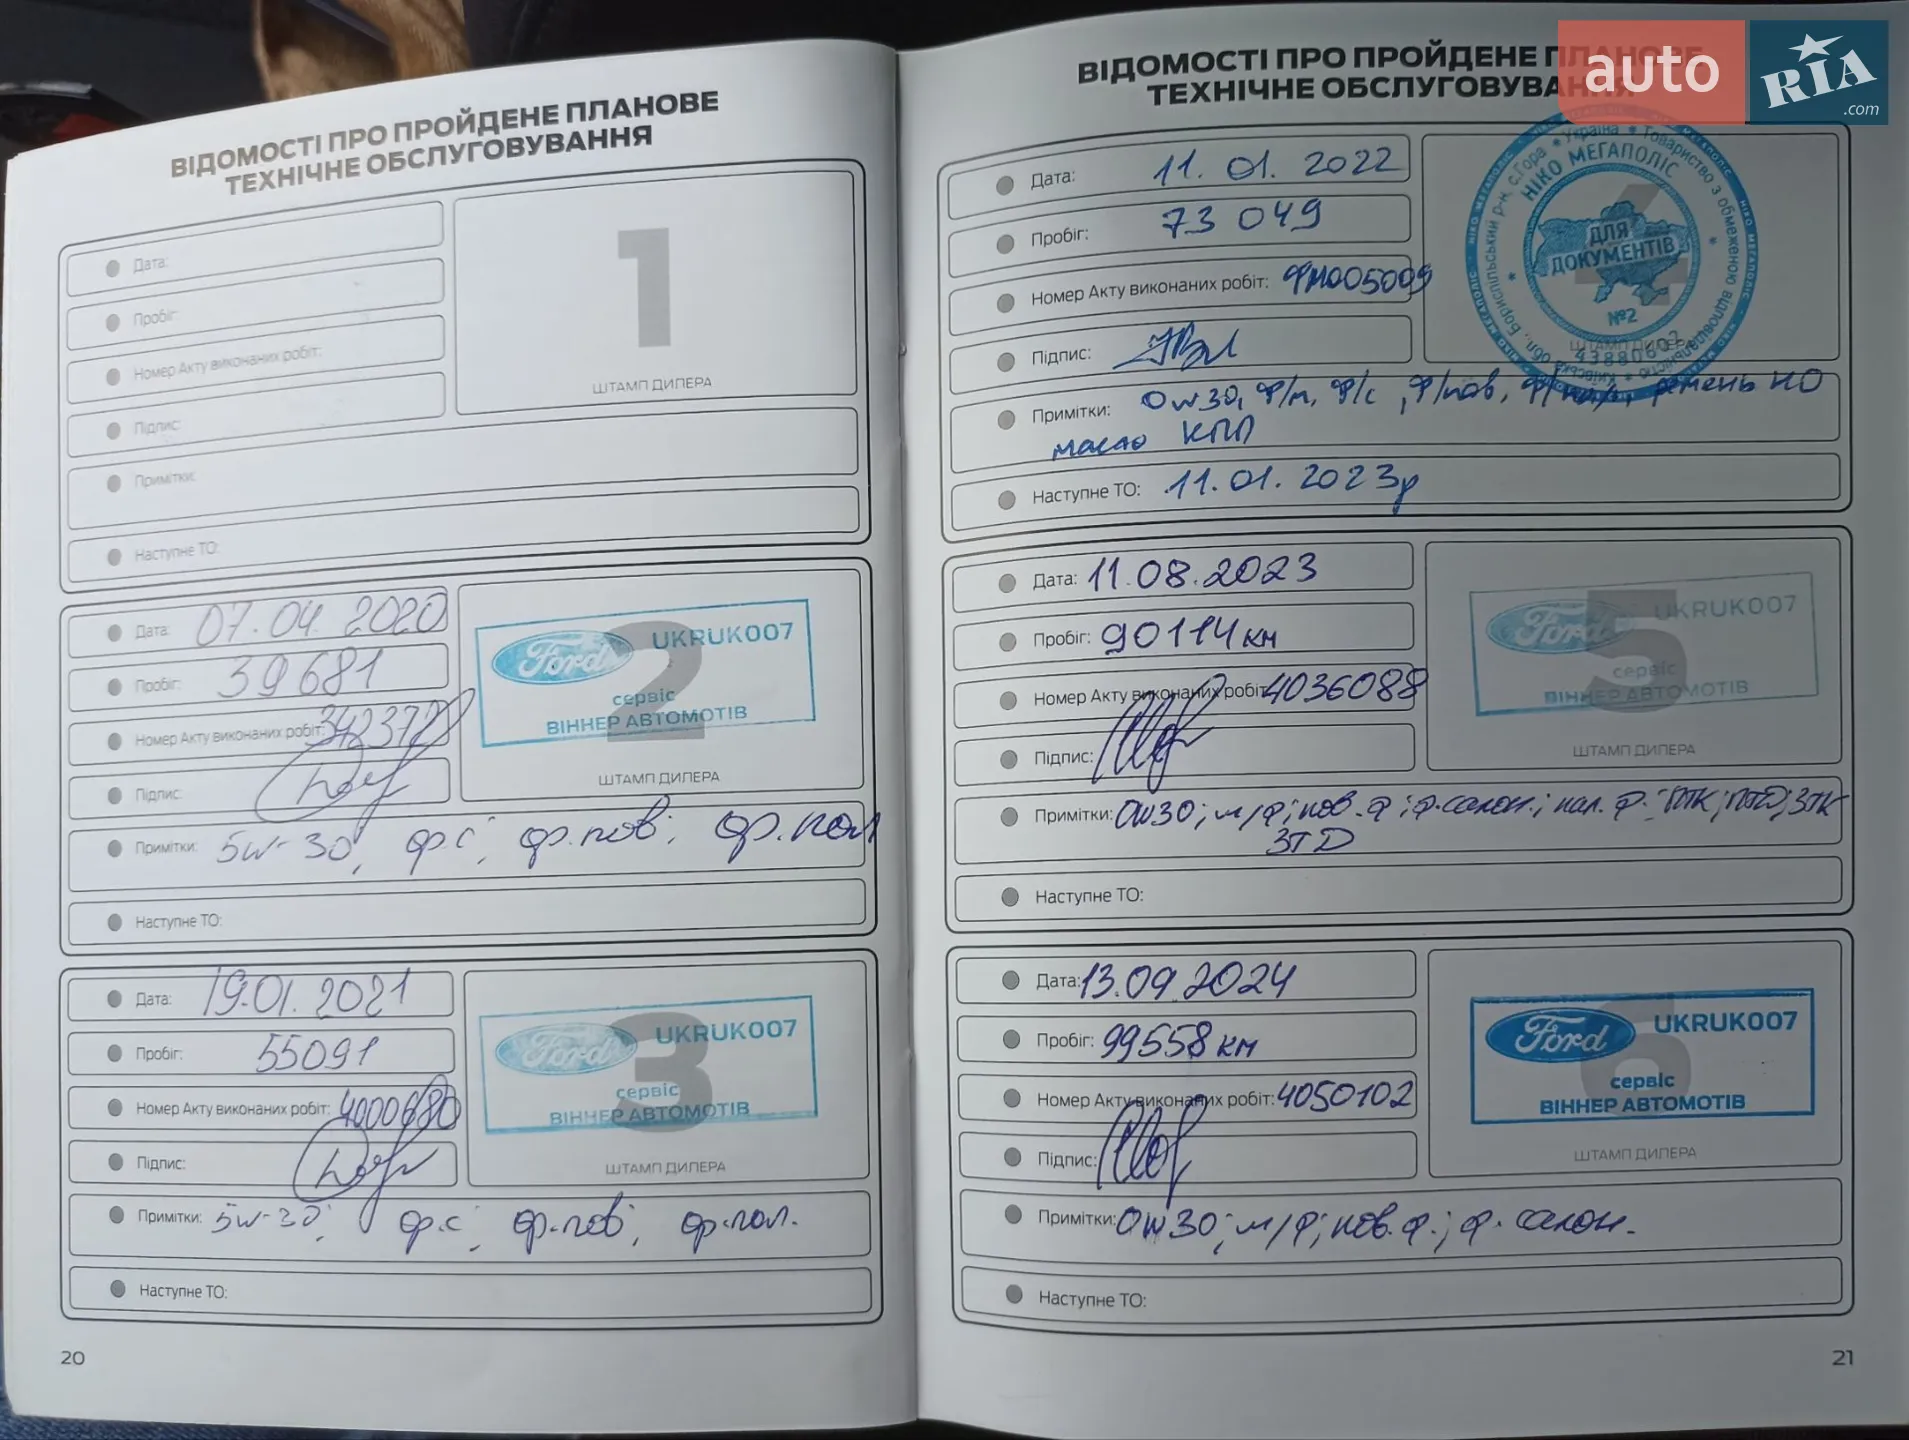 ВІДОМОСТІ ПРО ПРОЙДЕНЕ ПЛАНОВЕ
ТЕХНІЧНЕ ОБСЛУГОВУВАННЯ
Дата:
Пробіг:
Номер Акту виконаних робіт:
Підпис:
1
ШТАМП ДИЛЕРА
Примітки:
Наступне ТО:
Дата: 07.04.2020
Пробіг: 39681
Номер Акту виконаних робіт: 342372
Підпис:
2
Ford UKRUK007
сервіс
ВІННЕР АВТОМОТІВ
ШТАМП ДИЛЕРА
Примітки: 5w-30, ф.с, ф.пов; ф.пал
Наступне ТО:
Дата: 19.01.2021
Пробіг: 55091
Номер Акту виконаних робіт: 4000680
Підпис:
3
Ford UKRUK007
сервіс
ВІННЕР АВТОМОТІВ
ШТАМП ДИЛЕРА
Примітки: 5w-30; ф.с, ф.пов; ф.пал.
Наступне ТО:
20
ВІДОМОСТІ ПРО ПРОЙДЕНЕ ПЛАНОВЕ
ТЕХНІЧНЕ ОБСЛУГОВУВАННЯ
auto RIA
.com
Дата: 11.01.2022
Пробіг: 73 049
Номер Акту виконаних робіт: ФМ005009
Підпис:
4
Україна * Товариство з обмеженою відповідальністю * Київська обл., Бориспільський р-н, с.Гора *
НІКО МЕГАПОЛІС
ДЛЯ
ДОКУМЕНТІВ
№2
43880602
ШТАМП ДИЛЕРА
Примітки: 0w30, ф/м, ф/с, ф/пов, ремень НО
масло КПП
Наступне ТО: 11.01.2023р
Дата: 11.08.2023
Пробіг: 90114км
Номер Акту виконаних робіт: 4036088
Підпис:
5
Ford UKRUK007
сервіс
ВІННЕР АВТОМОТІВ
ШТАМП ДИЛЕРА
Примітки: 0w30; м/ф; пов.ф; ф.салон.; пал.ф.; ПТК; ПТД; ЗТК
ЗТД
Наступне ТО:
Дата: 13.09.2024
Пробіг: 99558км
Номер Акту виконаних робіт: 4050102
Підпис:
6
Ford UKRUK007
сервіс
ВІННЕР АВТОМОТІВ
ШТАМП ДИЛЕРА
Примітки: 0w30; м/ф; пов.ф.; ф.салон.
Наступне ТО:
21